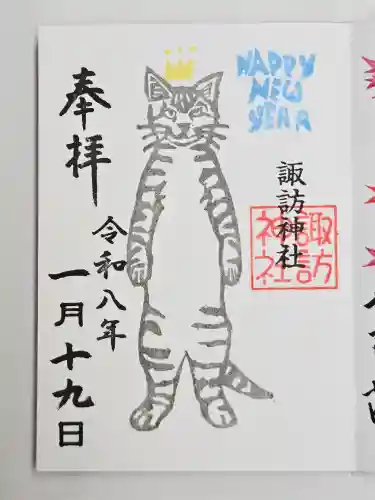 HAPPY
NEW
YEAR
諏訪神社
諏訪
神社
奉拝
令和八年
一月十九日